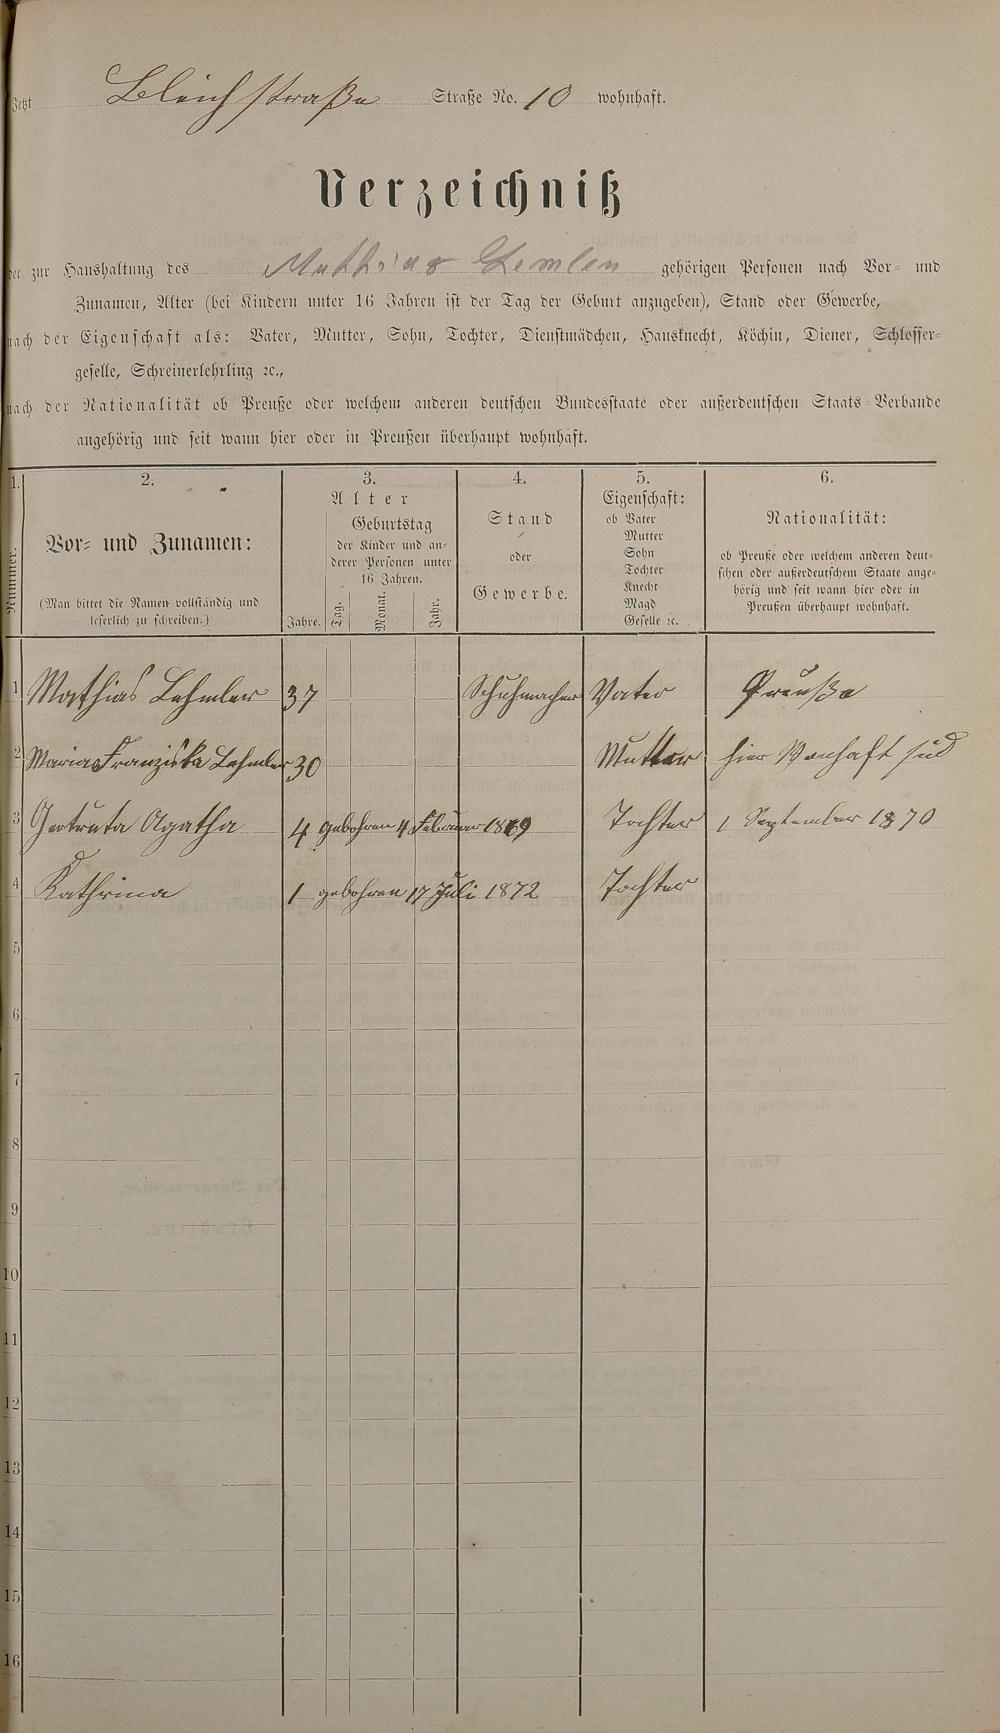 Jetzt Bleichstraße Straße No. 10 wohnhaft.
Verzeichniß
der zur Haushaltung des Mathias Lemlen gehörigen Personen nach Vor- und
Zunamen, Alter (bei Kindern unter 16 Jahren ist der Tag der Geburt anzugeben), Stand oder Gewerbe,
nach der Eigenschaft als: Vater, Mutter, Sohn, Tochter, Dienstmädchen, Hausknecht, Köchin, Diener, Schlosser-
geselle, Schreinerlehrling ꝛc.,
nach der Nationalität ob Preuße oder welchem anderen deutschen Bundesstaate oder außerdeutschen Staats-Verbande
angehörig und seit wann hier oder in Preußen überhaupt wohnhaft.
1. 2. 3. 4. 5. 6.
Nummer.
Vor- und Zunamen:
(Man bittet die Namen vollständig und
leserlich zu schreiben.)
Alter
Geburtstag
der Kinder und an-
derer Personen unter
16 Jahren.
Jahre. Tag. Monat. Jahr.
Stand
oder
Gewerbe.
Eigenschaft:
ob Vater
Mutter
Sohn
Tochter
Knecht
Magd
Geselle ꝛc.
Nationalität:
ob Preuße oder welchem anderen deut-
schen oder außerdeutschem Staate ange-
hörig und seit wann hier oder in
Preußen überhaupt wohnhaft.
1 Mathias Lehmler 37 Schuhmacher Vater Preuße
2 Maria Franziska Lehmler 30 Mutter hier Wonhaft siid
3 Gertruta Agatha 4 gebohren 4 Februar 1869 Tochter 1 September 1870
4 Kathrina 1 gebohren 17 Juli 1872 Tochter
5
6
7
8
9
10
11
12
13
14
15
16